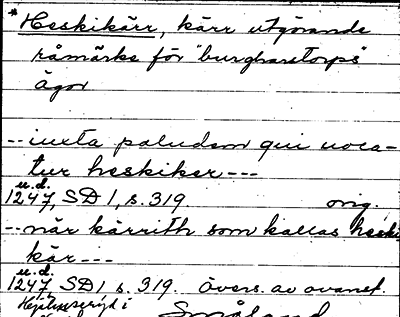 * Heskikärr, kärr utgörande
råmärke för "burgharstorps"
ägor
-- iuxta paludem qui uoca-
tur heskiker ---
u.d.
1247, SD 1, s. 319. orig.
-- när kärrith som kallas heski
kär ---
u.d.
1247 SD 1 s. 319. övers. av ovanst.
i
Småland